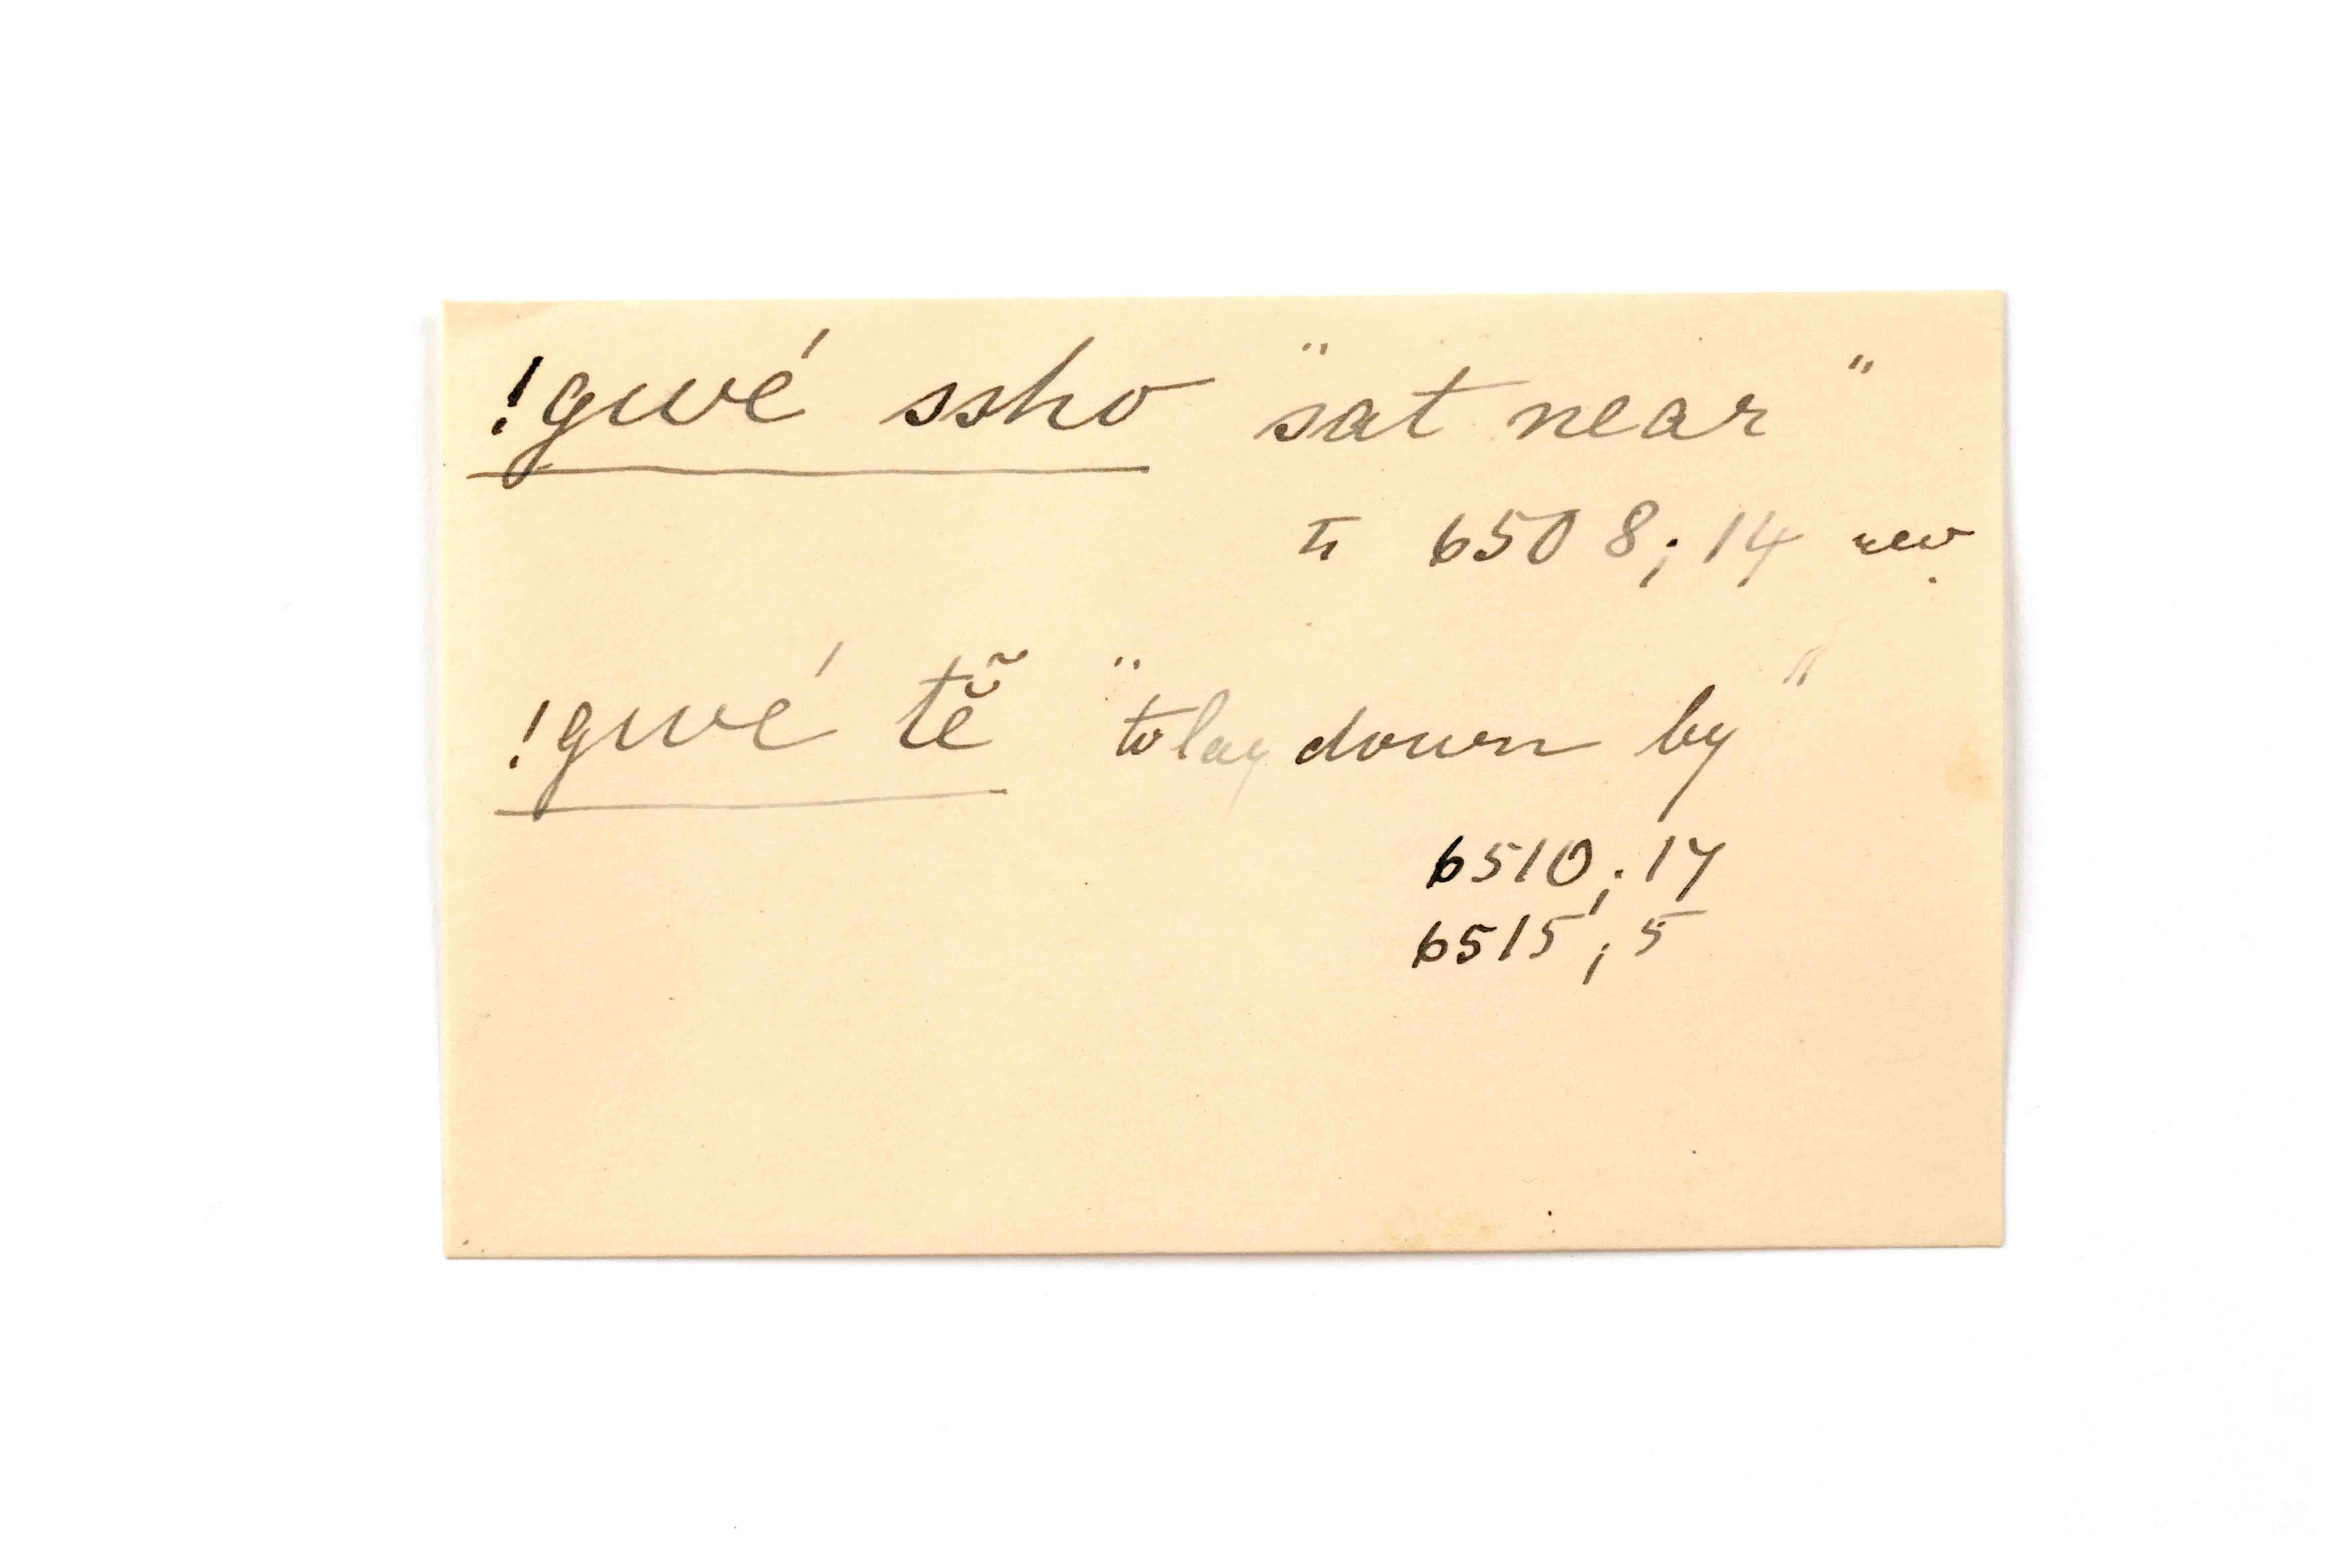 !gwé ssho "sat near"
6508; 14 rev.
!gwé tẽ̆ "to lay down by"
6510; 17
6515; 5